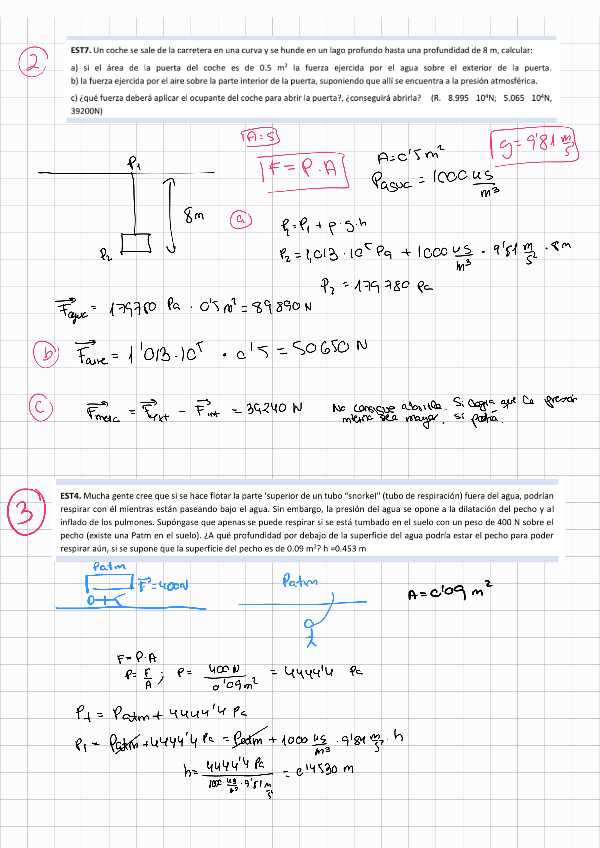 2
EST7. Un coche se sale de la carretera en una curva y se hunde en un lago profundo hasta una profundidad de 8 m, calcular:
a) si el área de la puerta del coche es de 0.5 m² la fuerza ejercida por el agua sobre el exterior de la puerta.
b) la fuerza ejercida por el aire sobre la parte interior de la puerta, suponiendo que allí se encuentra a la presión atmosférica.
c) ¿qué fuerza deberá aplicar el ocupante del coche para abrir la puerta?, ¿conseguirá abrirla? (R. 8.995 10⁴N; 5.065 10⁴N,
39200N)
A=S
F = P·A
A=0'5 m²
ρagua = 1000 kg/m³
g=9'81 m/s
P₁
8m
P₂
a
P₂=P₁ + ρ·g·h
P₂=1,013·10⁵ Pa + 1000 kg/m³ · 9'81 m/s² · 8m
P₂ = 179780 Pa
Fagua = 179780 Pa · 0'5 m² = 89890 N
b
Faire = 1'013·10⁵ · 0'5 = 50650 N
c
Fmec = Fext - Fint = 39240 N
No consigue abrirla. Si logra que la presión
interna sea mayor, si podrá.
3
EST4. Mucha gente cree que si se hace flotar la parte 'superior de un tubo "snorkel" (tubo de respiración) fuera del agua, podrían
respirar con él mientras están paseando bajo el agua. Sin embargo, la presión del agua se opone a la dilatación del pecho y al
inflado de los pulmones. Supóngase que apenas se puede respirar si se está tumbado en el suelo con un peso de 400 N sobre el
pecho (existe una Patm en el suelo). ¿A qué profundidad por debajo de la superficie del agua podría estar el pecho para poder
respirar aún, si se supone que la superficie del pecho es de 0.09 m²? h =0.453 m
Patm
F=400N
Patm
A=0'09 m²
F=P·A
P=F/A ; P= 400N/0'09m² = 4444'4 Pa
P₁ = Patm + 4444'4 Pa
P₁ = Patm + 4444'4 Pa = Patm + 1000 kg/m³ · 9'81 m/s² · h
h= 4444'4 Pa/1000 kg/m³ · 9'81 m/s² = 0'4530 m